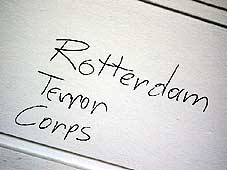 Rotterdam
Terror
Corps